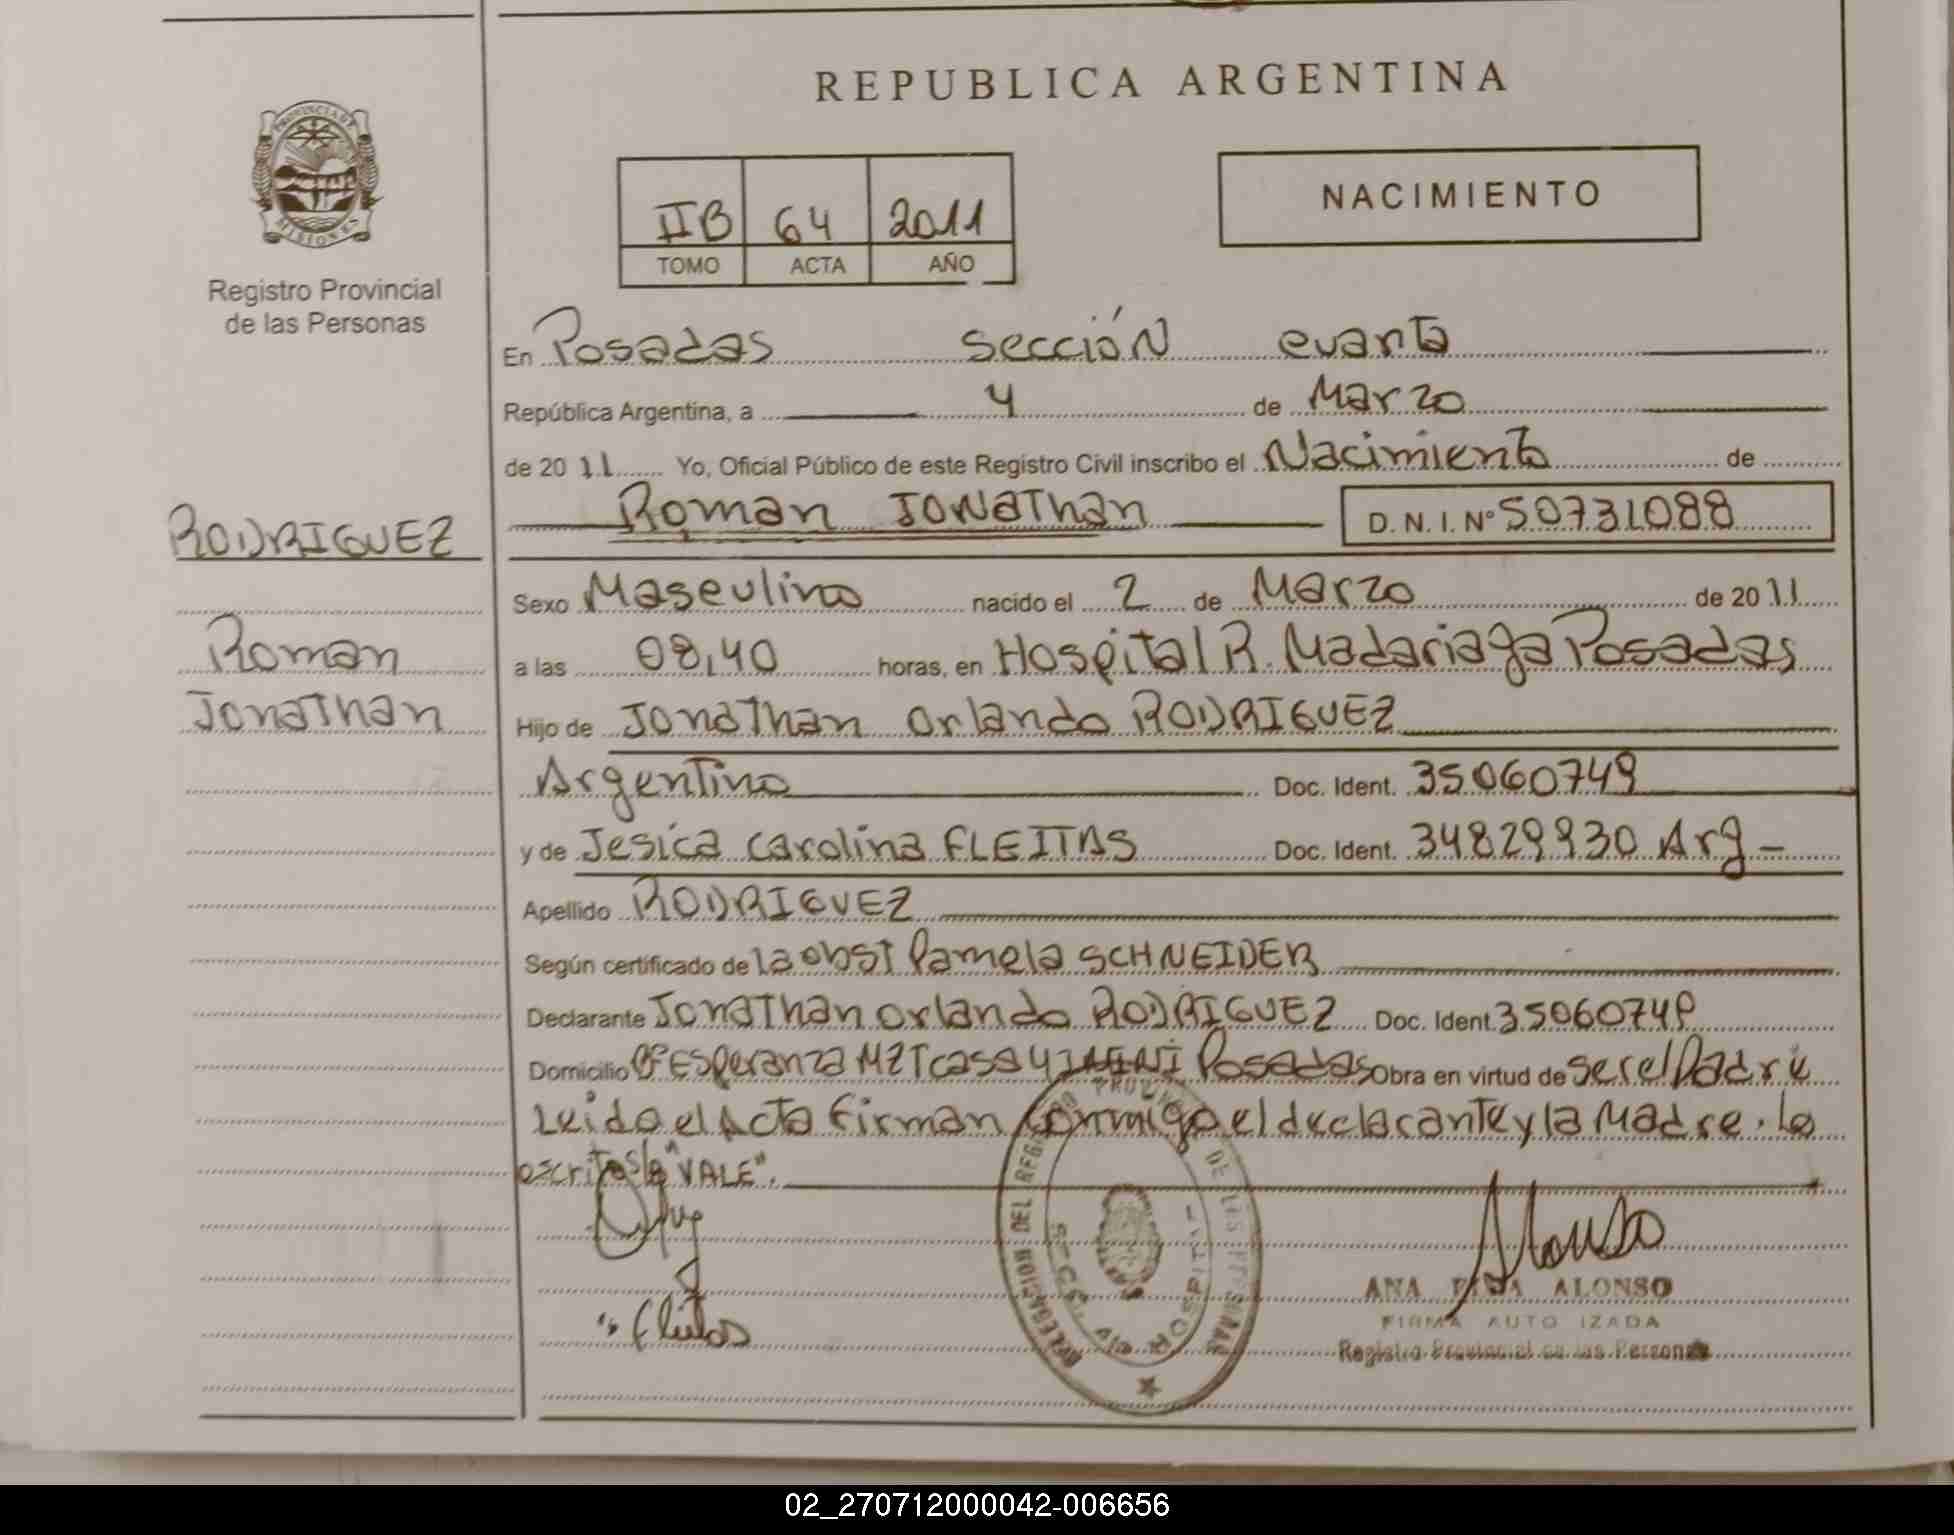 REPUBLICA ARGENTINA
PROVINCIA DE
MISIONES
Registro Provincial
de las Personas
IIB 64 2011
TOMO ACTA AÑO
NACIMIENTO
En Posadas sección cuarta
República Argentina, a 4 de Marzo
de 2011 Yo, Oficial Público de este Registro Civil inscribo el Nacimiento de
Roman Jonathan D.N.I.Nº 50731088
RODRIGUEZ
Roman
Jonathan
Sexo Masculino nacido el 2 de Marzo de 2011
a las 08,40 horas, en Hospital R. Madariaga Posadas
Hijo de Jonathan Orlando RODRIGUEZ
Argentino Doc. Ident. 35060749
y de Jesica Carolina FLEITAS Doc. Ident. 34829930 Arg-
Apellido RODRIGUEZ
Según certificado de la obst Pamela SCHNEIDER
Declarante Jonathan Orlando RODRIGUEZ Doc. Ident 35060749
Domicilio Bº Esperanza MZT casa 4 Posadas Obra en virtud de ser el Padre
Leido el Acta firman conmigo el declarante y la Madre. lo
escrito s/r "VALE".
Fleitas
DELEGACION DEL REGISTRO PROVINCIAL DE LAS PERSONAS
HOSPITAL
Alonso
ANA ALONSO
FIRMA AUTORIZADA
Registro Provincial de las Personas
02_270712000042-006656